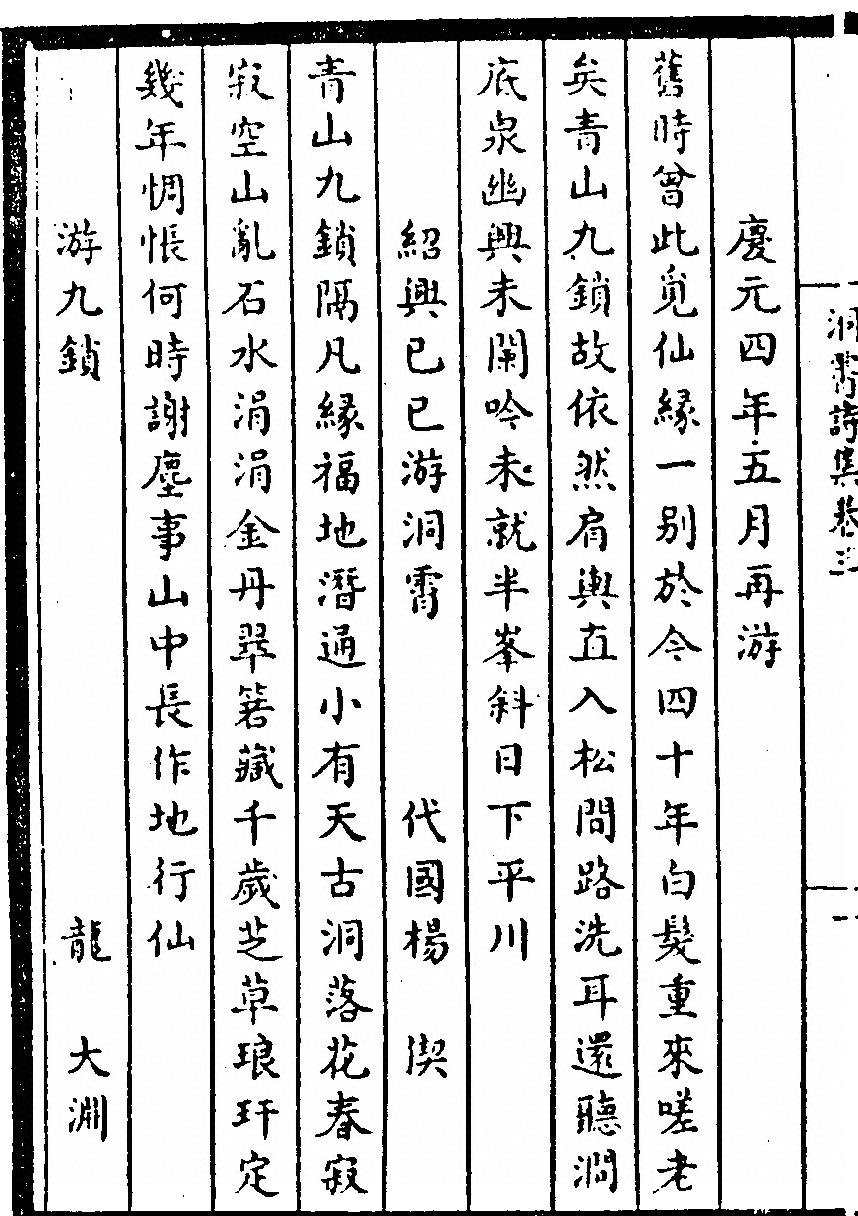 洞霄詩集卷三
一
慶元四年五月再游
舊時曾此覓仙緣一別於今四十年白髮重來嗟老
矣青山九鎖故依然肩輿直入松間路洗耳還聽澗
底泉幽興未闌吟未就半峯斜日下平川
紹興已已游洞霄 代國楊 偰
青山九鎖隔凡緣福地潛通小有天古洞落花春寂
寂空山亂石水涓涓金丹翠篛藏千歲芝草琅玕定
幾年惆悵何時謝塵事山中長作地行仙
游九鎖 龍 大淵